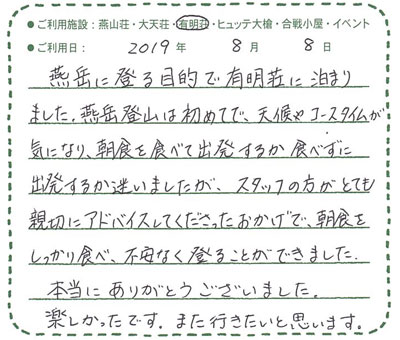 ●ご利用施設：燕山荘・大天荘・有明荘・ヒュッテ大槍・合戦小屋・イベント
●ご利用日： 2019 年 8 月 8 日
燕岳に登る目的で有明荘に泊まり
ました。燕岳登山は初めてで、天候やコースタイムが
気になり、朝食を食べて出発するか 食べずに
出発するか迷いましたが、スタッフの方がとても
親切にアドバイスしてくださったおかげで、朝食を
しっかり食べ、不安なく登ることができました。
本当に ありがとうございました。
楽しかったです。また行きたいと思います。